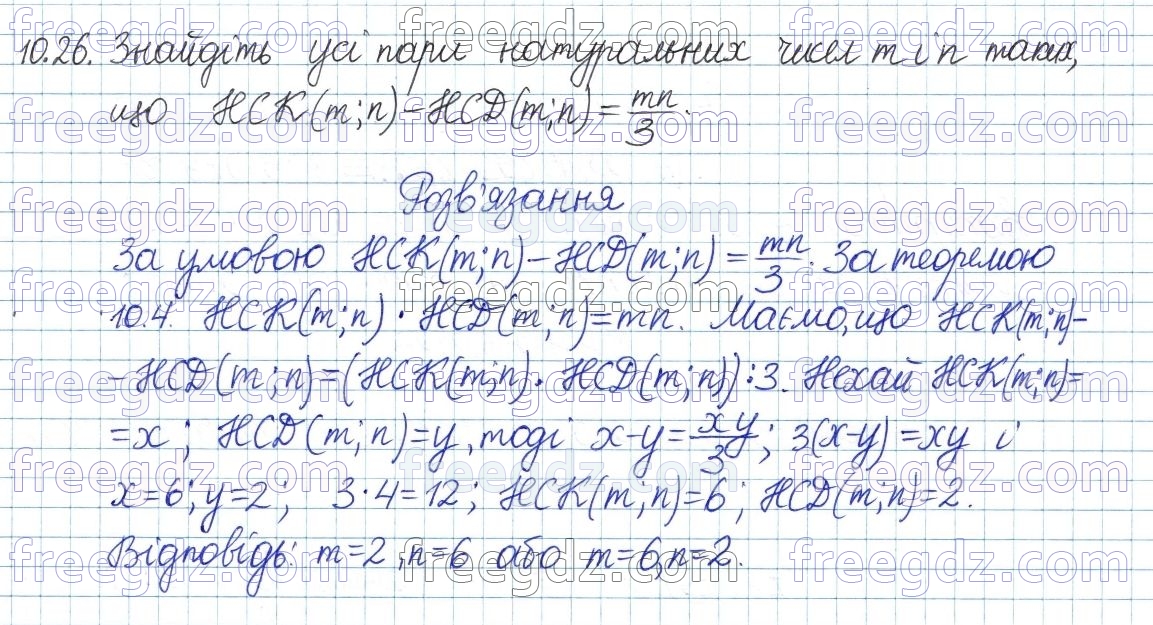 10.26. Знайдіть усі пари натуральних чисел m і n таких,
що НСК(m;n)-НСД(m;n)=mn/3.
Розв'язання
За умовою НСК(m;n)-НСД(m;n)=mn/3. За теоремою
10.4. НСК(m;n)·НСД(m;n)=mn. Маємо, що НСК(m;n)-
-НСД(m;n)=(НСК(m;n)·НСД(m;n)):3. Нехай НСК(m;n)=
=x; НСД(m;n)=y, тоді x-y=xy/3; 3(x-y)=xy і
x=6; y=2; 3·4=12; НСК(m;n)=6; НСД(m;n)=2.
Відповідь: m=2, n=6 або m=6, n=2.
freegdz.com